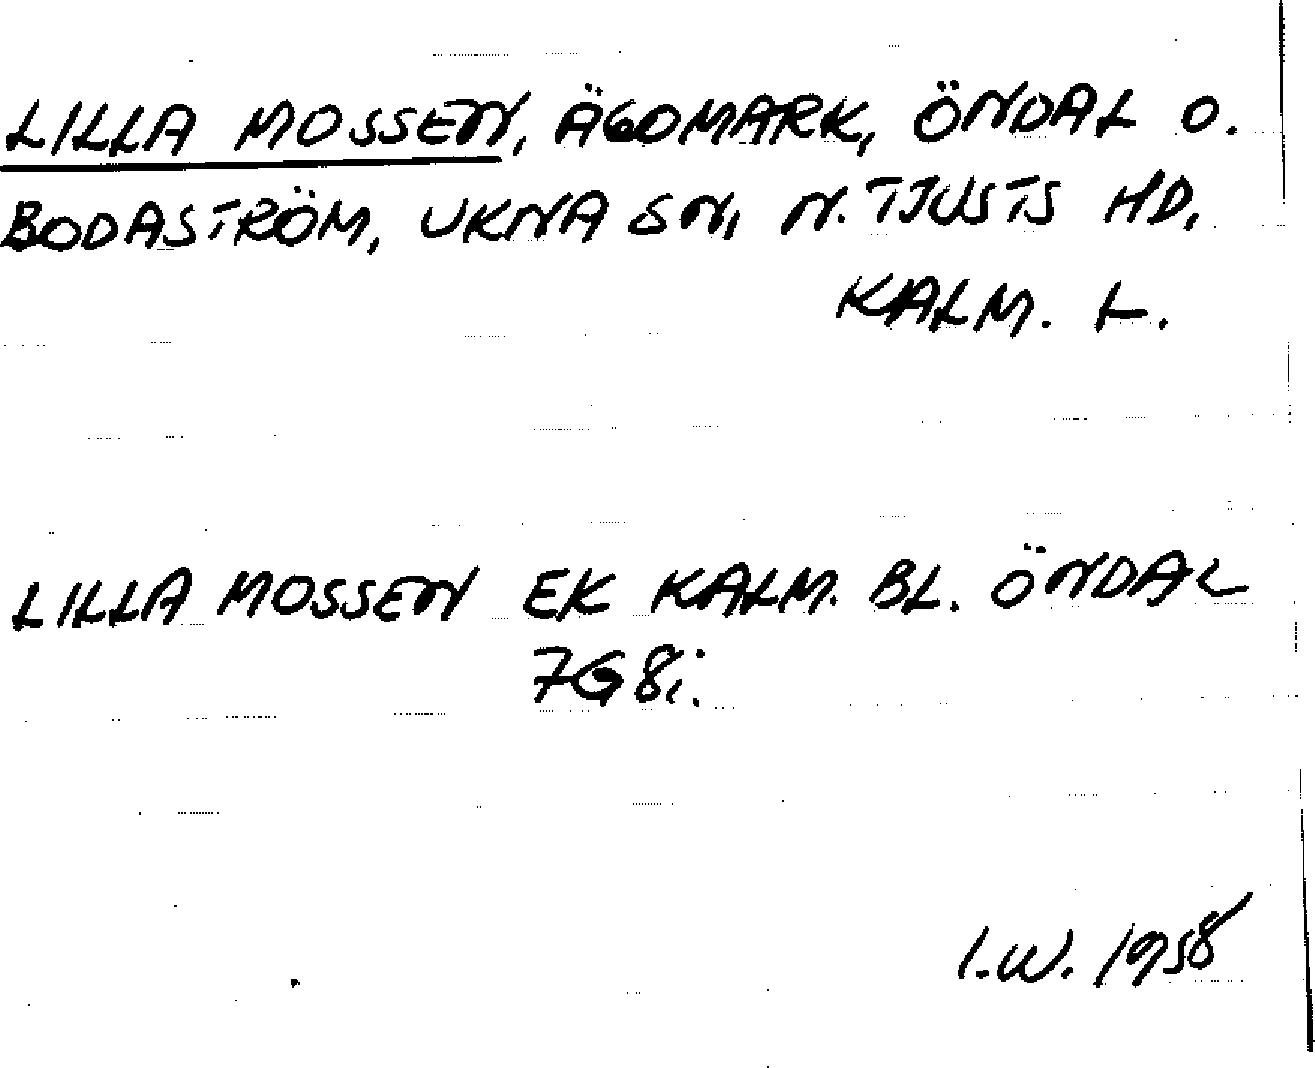 LILLA MOSSEN, ÄGOMARK, ÖNDAL O.
BODASTRÖM, UKNA SN, N. TJUSTS HD,
KALM. L.
LILLA MOSSEN EK KALM. BL. ÖNDAL
7G8i.
I.W. 1958